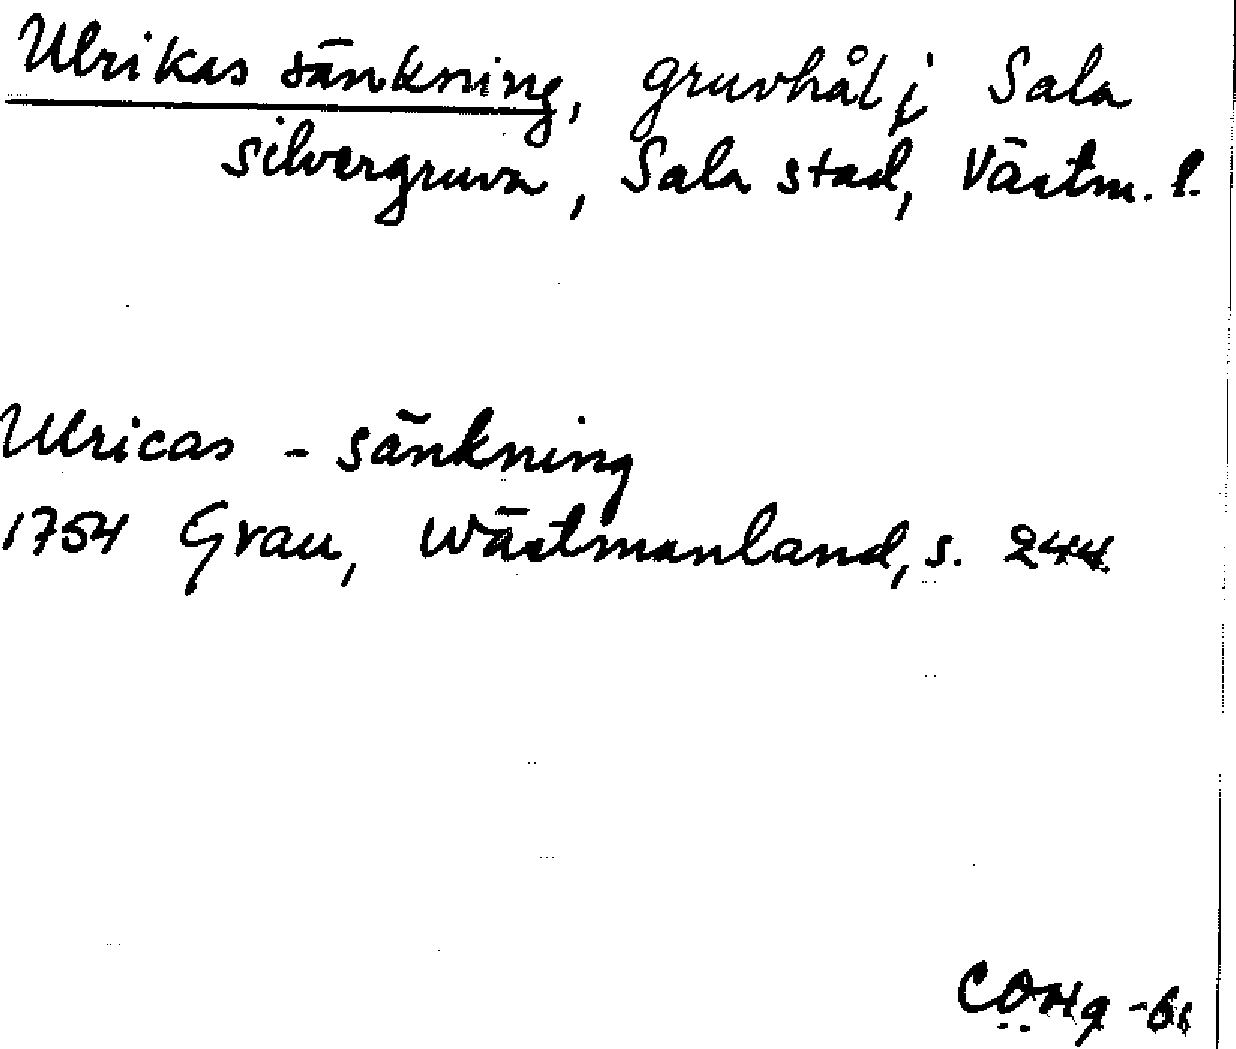 Ulrikas sänkning, gruvhål i Sala
silvergruva, Sala stad, Västm. l.
Ulricas - sänkning
1754 Grau, Wästmanland, s. 244